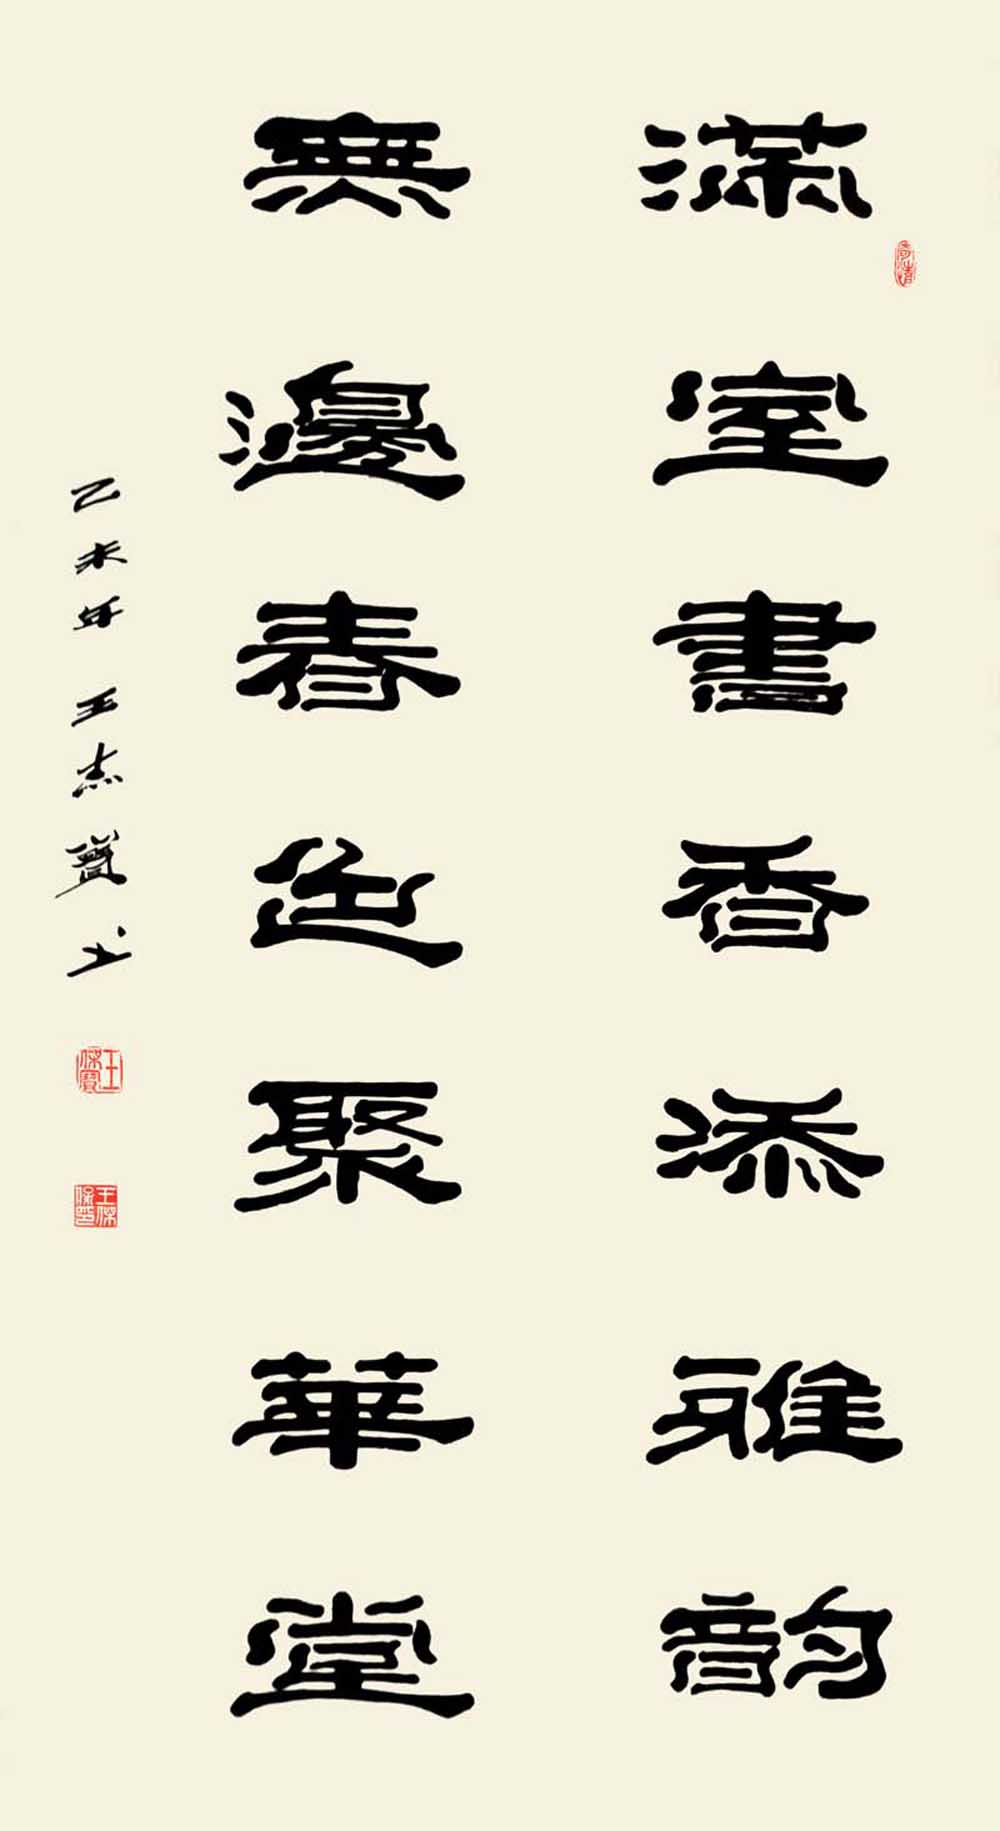 满室書香添雅韵
無邊春色聚華堂
乙未年 王杰寶书